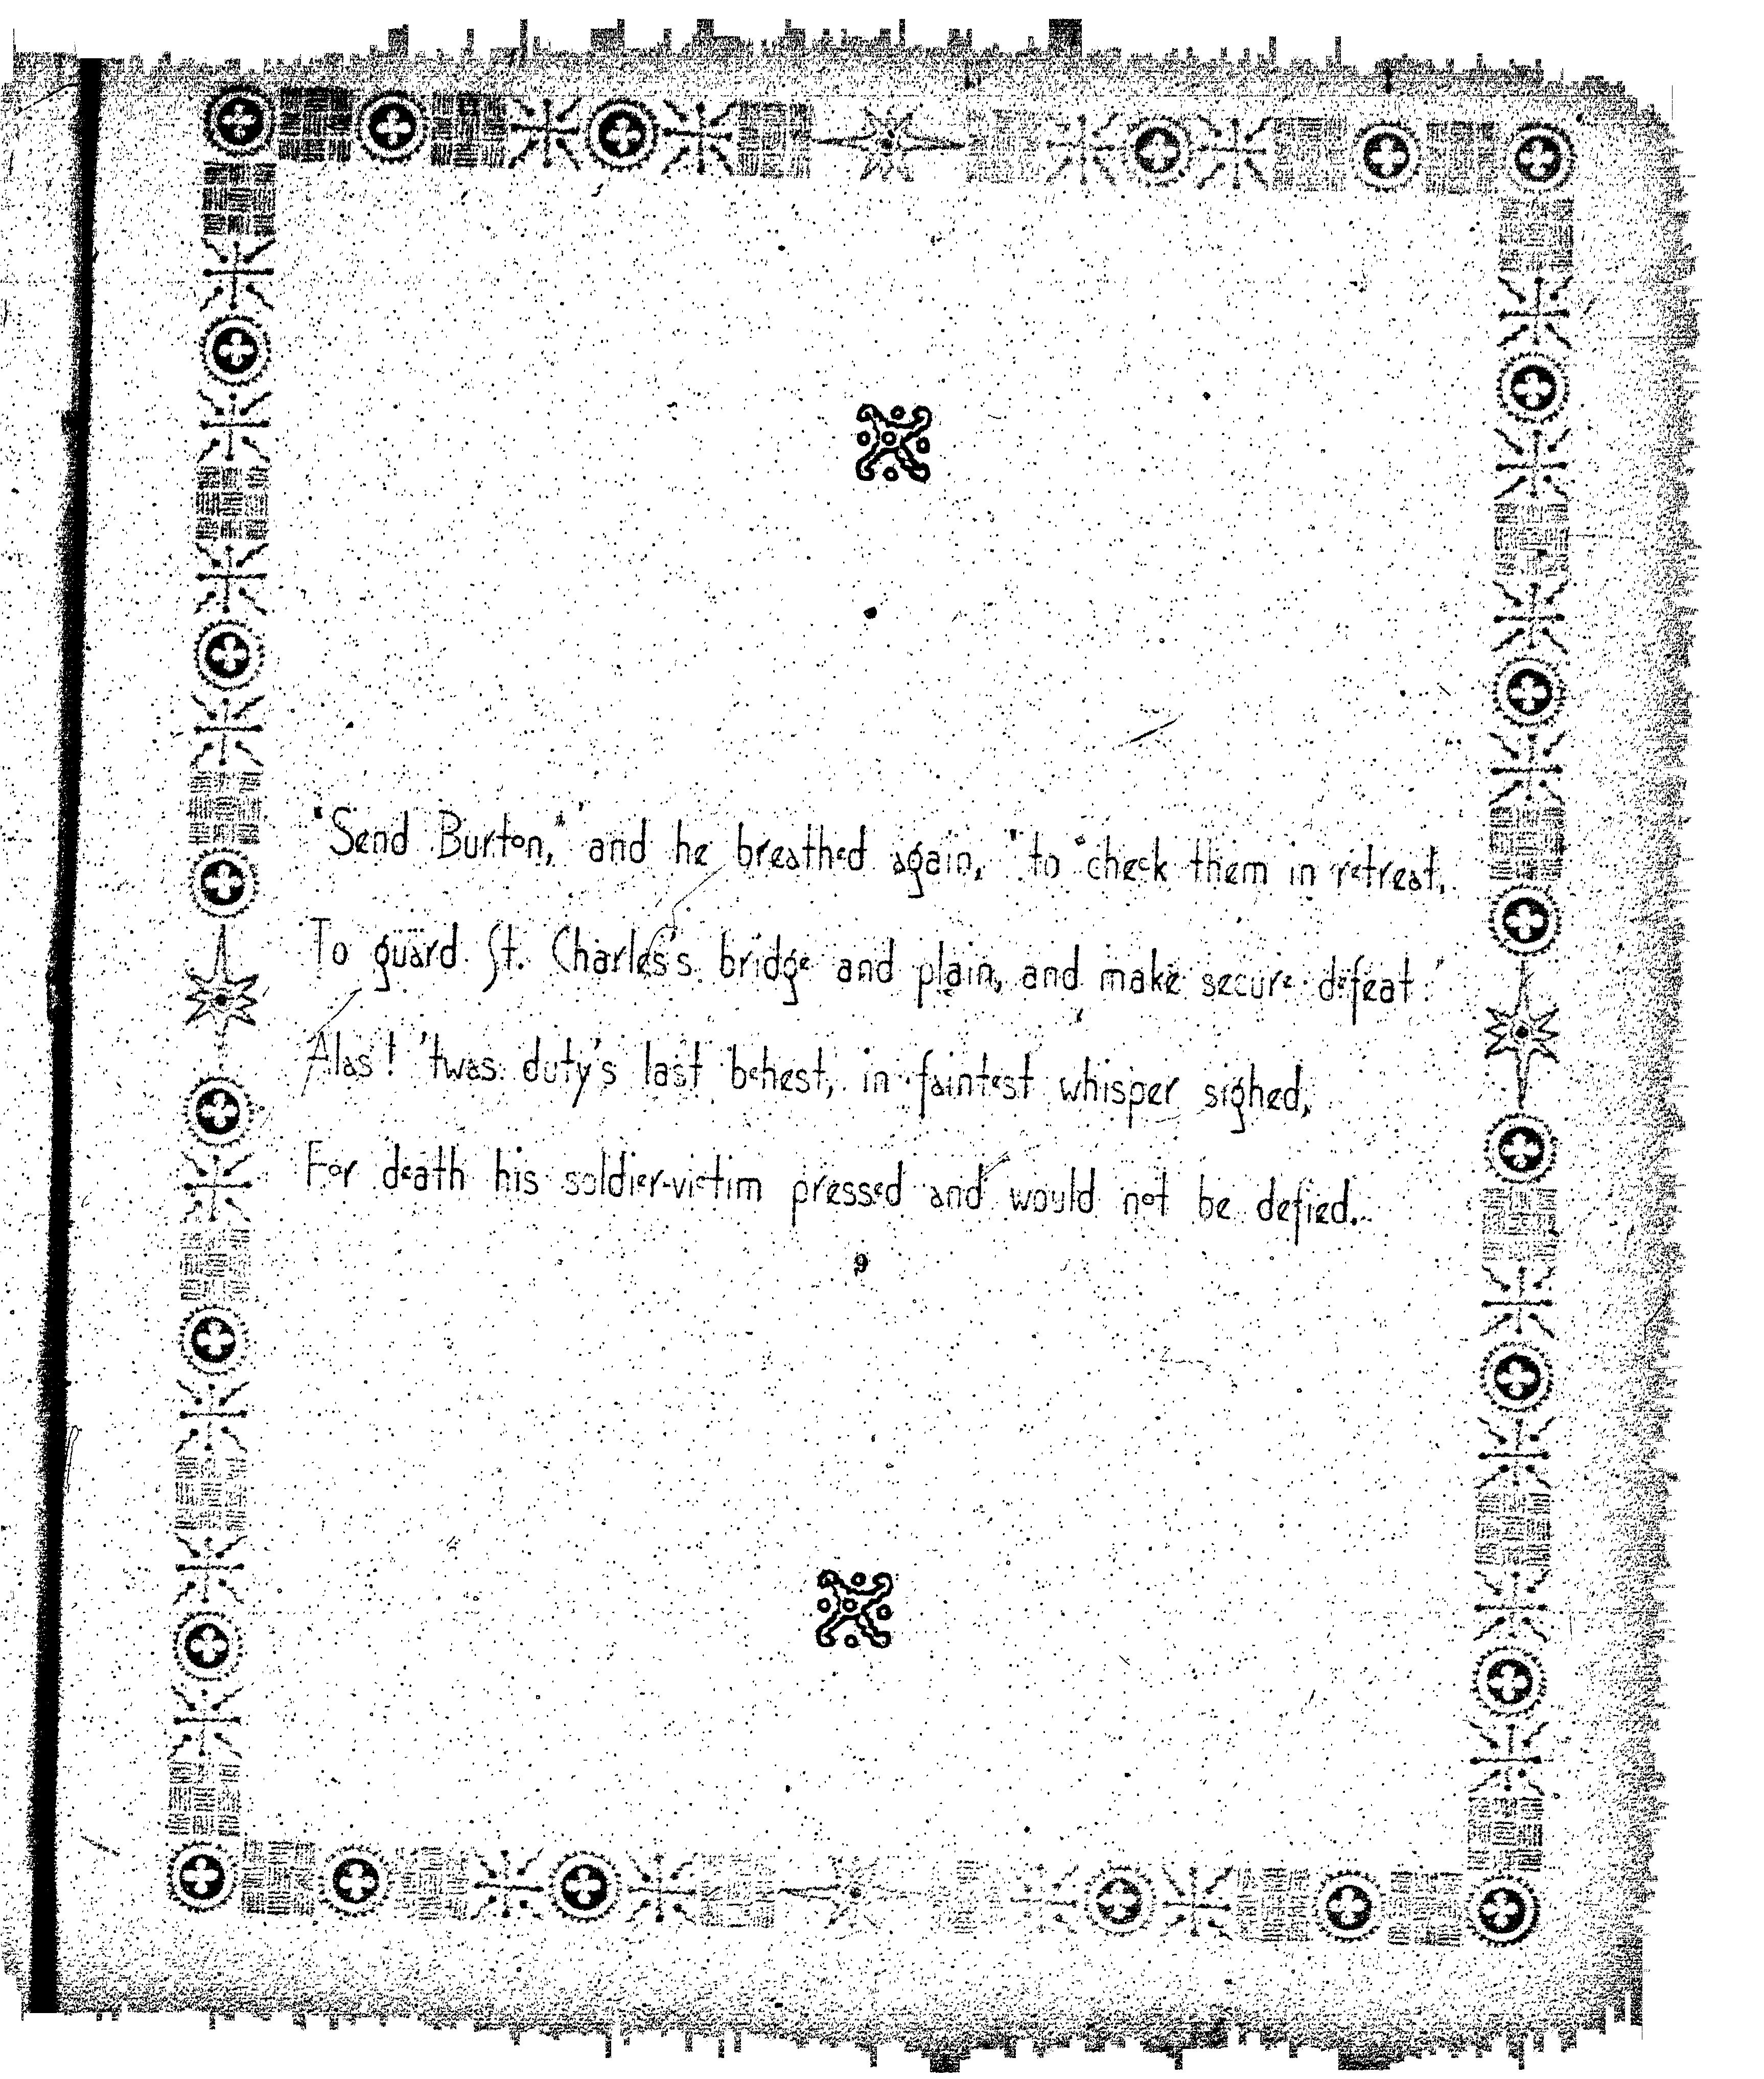 "Send Burton," and he breathed again, "to check them in retreat,
To guard St. Charles's bridge and plain, and make secure defeat."
Alas! 'twas duty's last behest, in faintest whisper sighed,
For death his soldier-victim pressed and would not be defied.
9